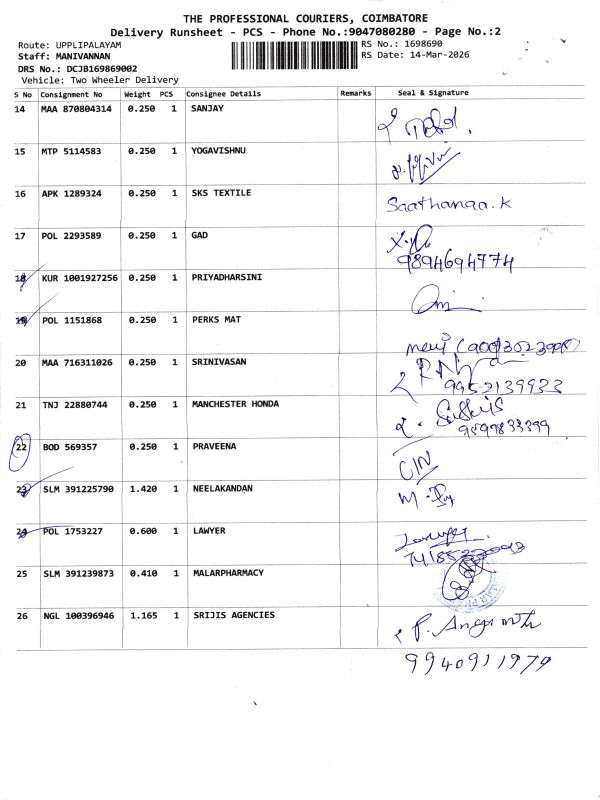 THE PROFESSIONAL COURIERS, COIMBATORE
Delivery Runsheet - PCS - Phone No.:9047080280 - Page No.:2
Route: UPPLIPALAYAM RS No.: 1698690
Staff: MANIVANNAN RS Date: 14-Mar-2026
DRS No.: DCJB169869002
Vehicle: Two Wheeler Delivery
S No Consignment No Weight PCS Consignee Details Remarks Seal & Signature
14 MAA 870804314 0.250 1 SANJAY
15 MTP 5114583 0.250 1 YOGAVISHNU
16 APK 1289324 0.250 1 SKS TEXTILE Saathanaa.K
17 POL 2293589 0.250 1 GAD
9894694774
18 KUR 1001927256 0.250 1 PRIYADHARSINI
19 POL 1151868 0.250 1 PERKS MAT
20 MAA 716311026 0.250 1 SRINIVASAN
9952139933
21 TNJ 22880744 0.250 1 MANCHESTER HONDA
22 BOD 569357 0.250 1 PRAVEENA
23 SLM 391225790 1.420 1 NEELAKANDAN
24 POL 1753227 0.600 1 LAWYER
25 SLM 391239873 0.410 1 MALARPHARMACY
26 NGL 100396946 1.165 1 SRIJIS AGENCIES
9940911979